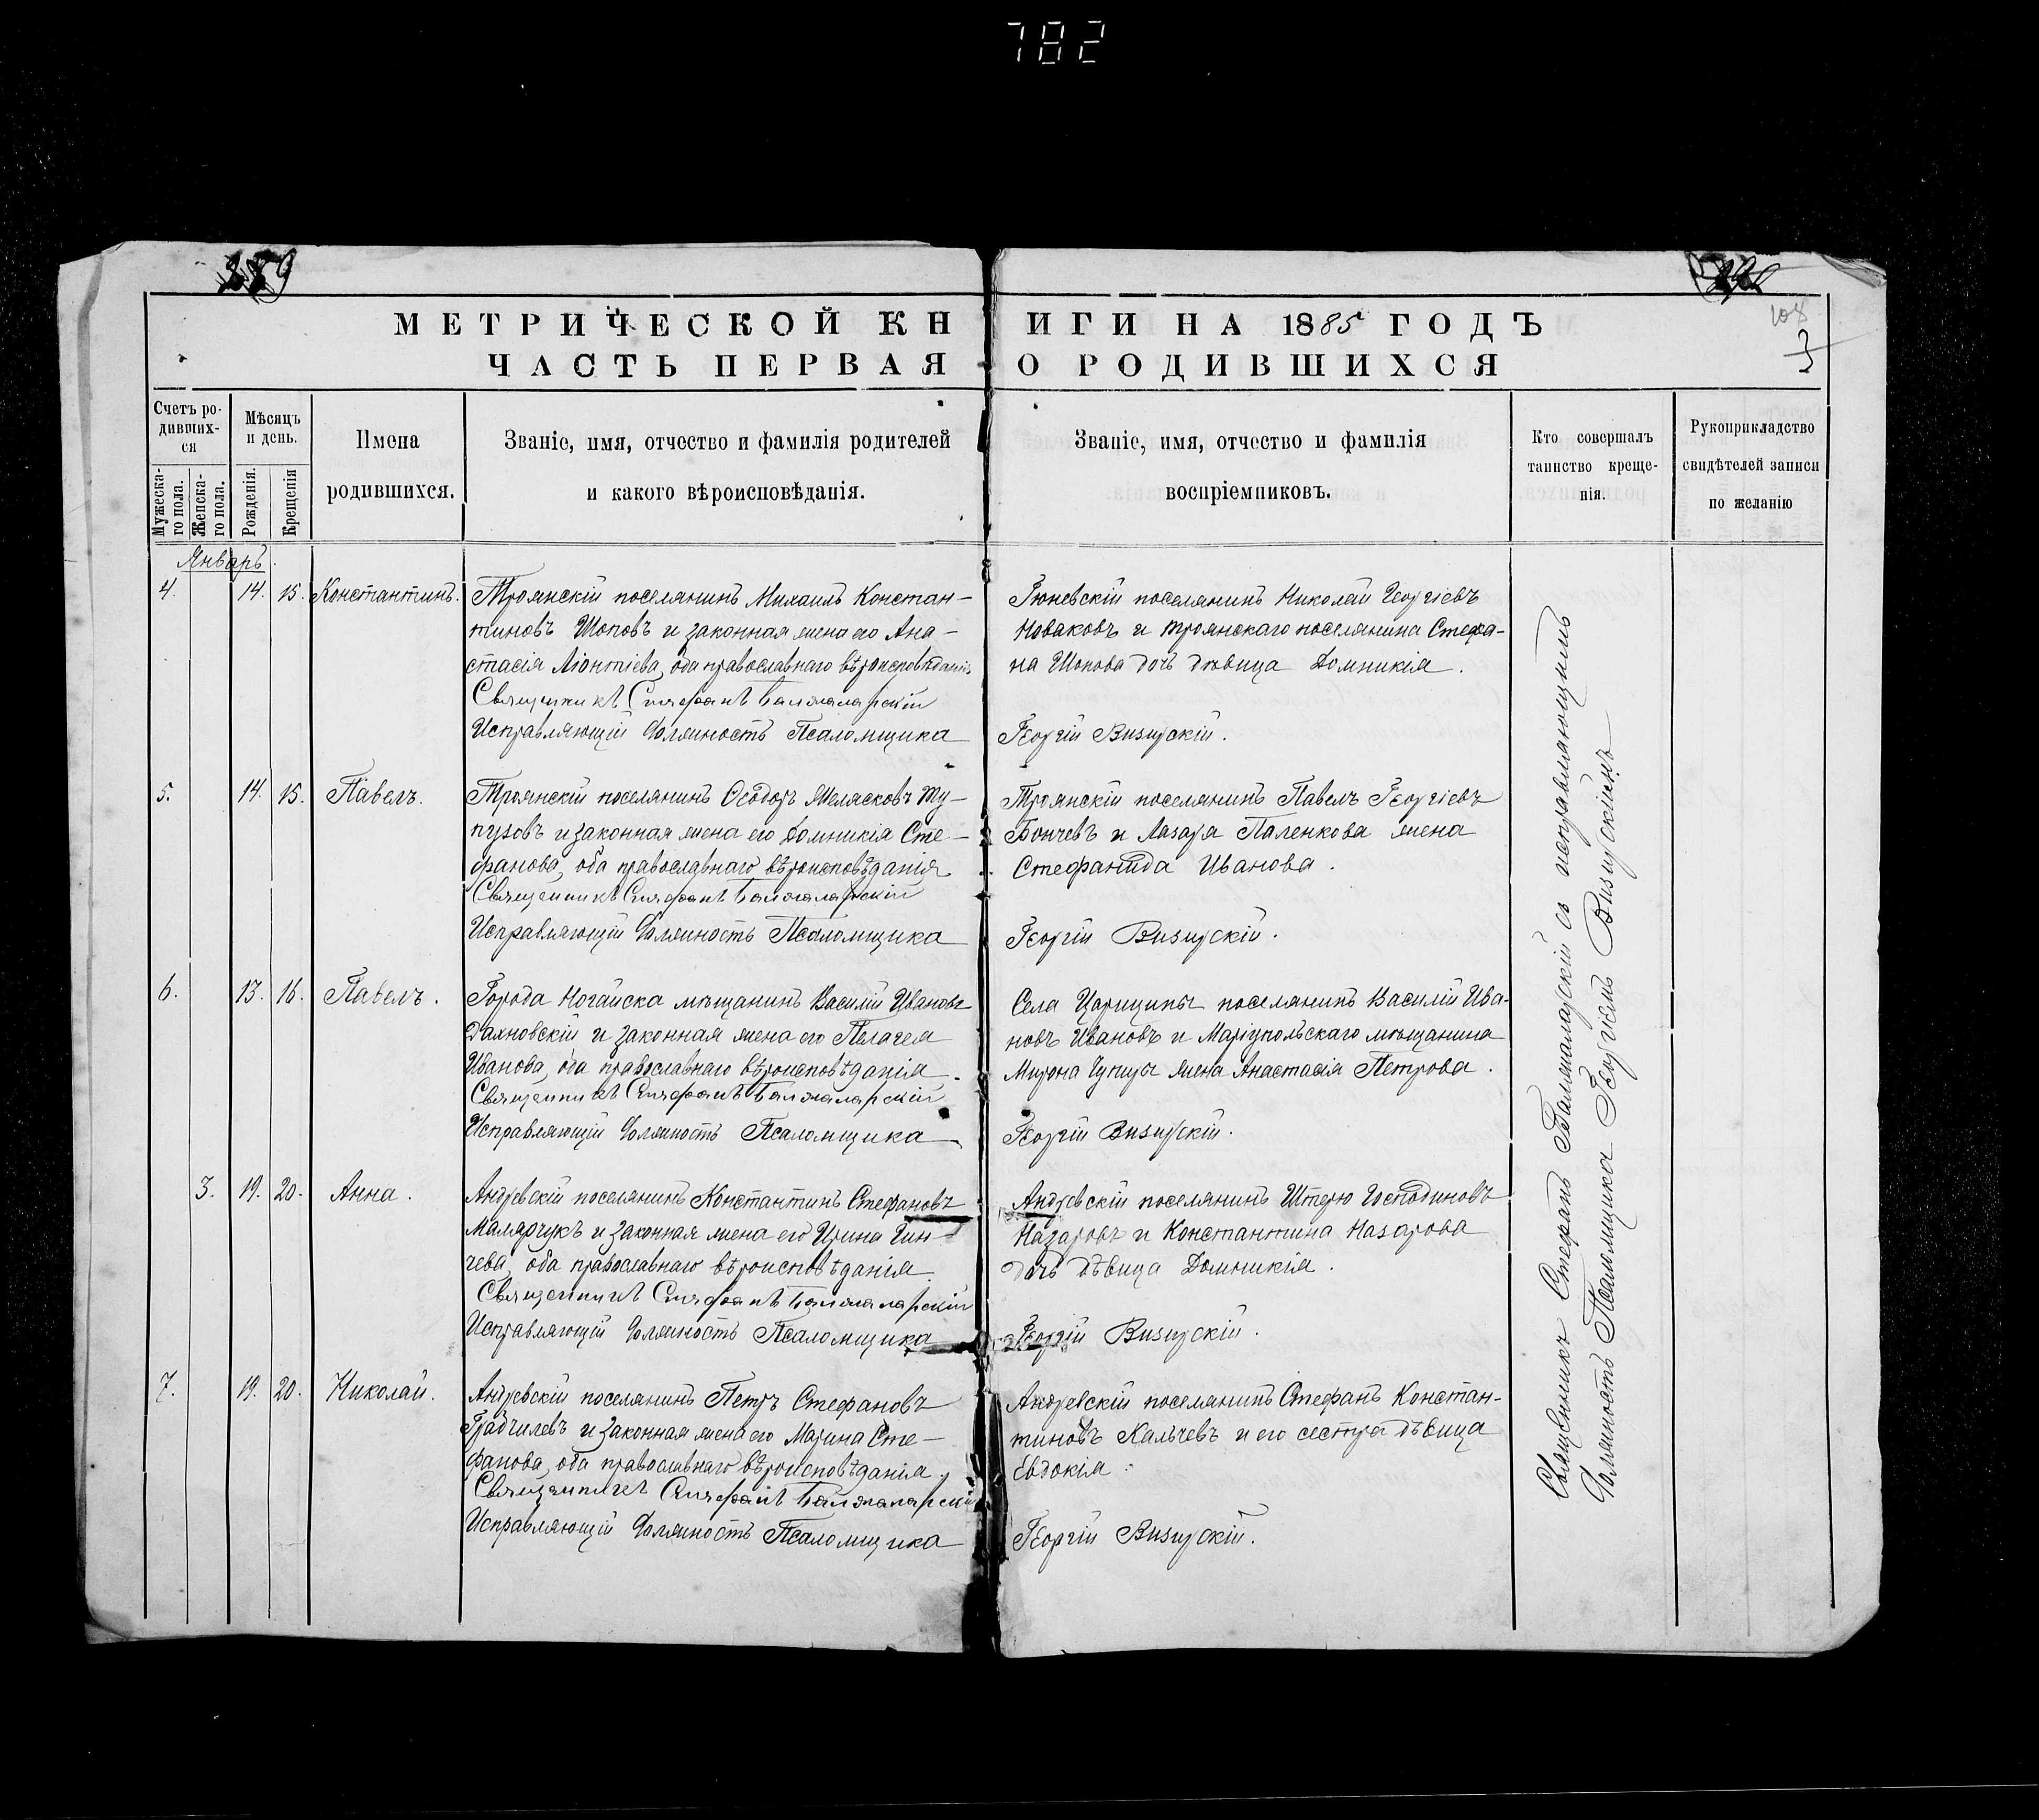 782
359
МЕТРИЧЕСКОЙ КНИГИ НА 1885 ГОДЪ
108
3
ЧАСТЬ ПЕРВАЯ О РОДИВШИХСЯ
Счетъ ро-
дивших-
ся
Мужеска-
го пола.
Женска-
го пола.
Мѣсяцъ
и день.
Рожденія.
Крещенія
Имена
родившихся.
Званіе, имя, отчество и фамилія родителей
и какого вѣроисповѣданія.
Званіе, имя, отчество и фамилія
воспріемниковъ.
Кто совершалъ
таинство креще-
нія.
Рукоприкладство
свидѣтелей записи
по желанію
Январь.
4. 14. 15. Константинъ.
Троянскій поселянинъ Михаилъ Констан-
тиновъ Шоповъ и законная жена его Ана-
стасія Ліонтіева, оба православнаго вѣроисповѣданія
Священникъ Стефанъ Балжаларскій
Исправляющій должность Псаломщика
Гюневскій поселянинъ Николай Георгіевъ
Новаковъ и троянскаго поселянина Стефа-
на Шопова дочь дѣвица Домникія.
Георгій Визирскій.
5. 14. 15. Павелъ.
Троянскій поселянинъ Ѳеодоръ Желясковъ Ту-
пузовъ и законная жена его Домникія Сте-
фанова, оба православнаго вѣроисповѣданія
Священникъ Стефанъ Балжаларскій
Исправляющій должность Псаломщика
Троянскій поселянинъ Павелъ Георгіевъ
Бончевъ и Лазаря Паленкова жена
Стефанида Иванова.
Георгій Визирскій.
6. 13. 16. Павелъ.
Города Ногайска мѣщанинъ Василій Ивановъ
Дахновскій и законная жена его Пелагея
Иванова, оба православнаго вѣроисповѣданія.
Священникъ Стефанъ Балжаларскій
Исправляющій должность Псаломщика
Села Царицыны поселянинъ Василій Ива-
новъ Ивановъ и Маріупольскаго мѣщанина
Мирона Цупиы жена Анастасія Петрова.
Георгій Визирскій.
3. 19. 20. Анна.
Андревскій поселянинъ Константинъ Стефановъ
Малярчукъ и законная жена его Ирина Гин-
чева, оба православнаго вѣроисповѣданія.
Священникъ Стефанъ Балжаларскій
Исправляющій должность Псаломщика
Андревскій поселянинъ Штерю Господиновъ
Назаровъ и Константина Назарова
дочь дѣвица Домникія.
Георгій Визирскій.
7. 19. 20. Николай.
Андревскій поселянинъ Петръ Стефановъ
Градчилевъ и законная жена его Марина Сте-
фанова, оба православнаго вѣроисповѣданія.
Священникъ Стефанъ Балжаларскій
Исправляющій должность Псаломщика
Андревскій поселянинъ Стефанъ Констан-
тиновъ Кальчевъ и его сестра дѣвица
Евдокія.
Георгій Визирскій.
Священникъ Стефанъ Балжаларскій съ исправляющимъ
должность Псаломщика Георгіемъ Визирскимъ